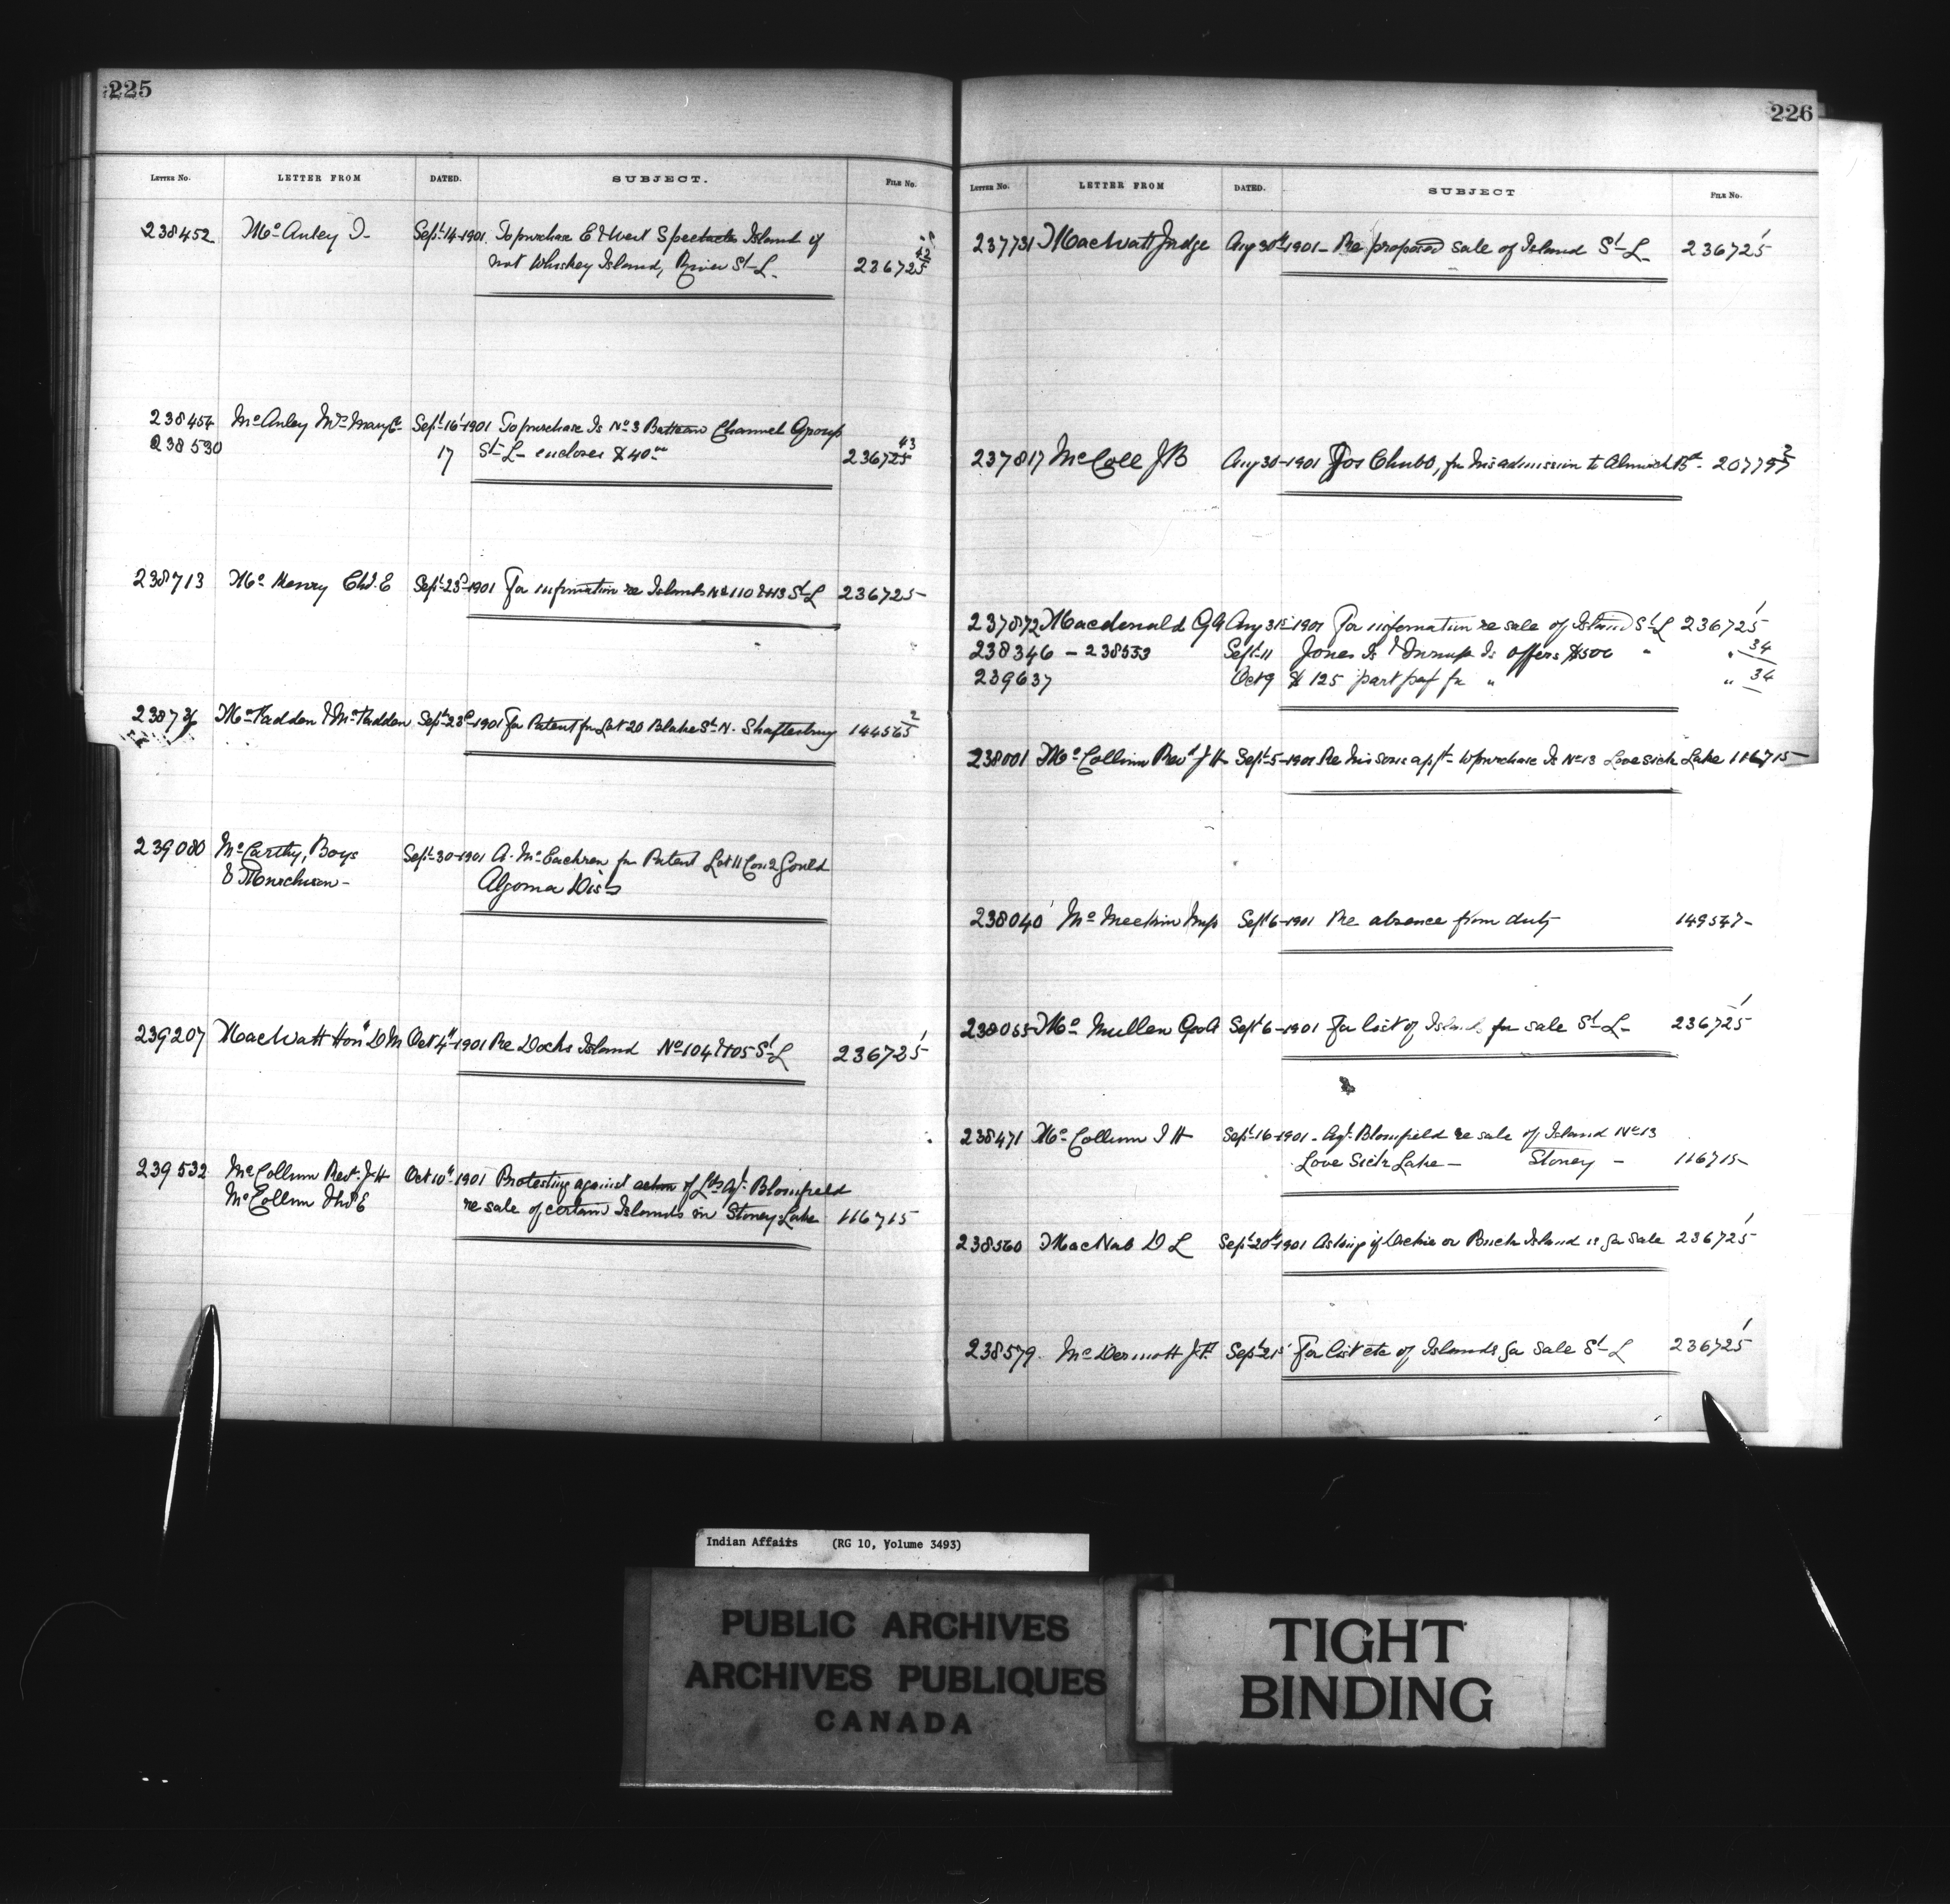 225
LETTER No. LETTER FROM DATED. SUBJECT. FILE No.
238452 Mc Anley J- Sept 14-1901. To purchase E & West Spectacle Island if 42
not Whiskey Island, River St-L- 236725
238454 Mc Anley Mrs Mary E- Sept 16-1901 To purchase Is No 3 Batteau Channel Group
238530 17 St-L- encloses $40.00 236725 43
238713 Mc Henry Chs. E Sept-23d-1901 For information re Islands No 110 & 113 St-L 236725-
Mc Fadden & McFadden Sept-23d-1901 for Patent for Lot 20 Blake St. N. Shaftesbury 144565 2
239080 McCarthy, Boys Sept-30-1901 A. McEachren for Patent Lot 11 Con 2 Gould
& Murchison- Algoma Dist
239207 MacWatt Hon D M Oct 4th-1901 Re Docks Island No 104 & 105 St-L 236725 1
239532 McCollum Revd. J-H Oct 10th 1901 Protesting against action of Lds Agt. Blomfield
McCollum Thos E re sale of certain Islands in Stoney Lake 116715
226
LETTER No. LETTER FROM DATED. SUBJECT FILE No.
237731 MacWatt Judge Aug 30th 1901- Re proposed sale of Island St-L- 236725 1
237817 McColl J B Aug 30-1901 Jos Chubb, for his admission to Alnwick Bd- 207797 2
237872 Macdonald G A Aug 31st 1901 For information re sale of Island St-L 236725 1
238346 - 238533 Sept-11 Jones Is & Is offers $500 " " 34
239637 Oct 9 $125 part pay for " " 34
238001 Mc Collum Revd J H- Sept-5-1901 Re his sons appt- to purchase Is No 13 Lovesick Lake 116715-
238040 Mc Meekin Insp Sept 6-1901 Re absence from duty 149547-
238065- Mc Mullen Geo A Sept 6-1901 For list of Islands for sale St-L- 236725 1
238471 Mc Collum J H- Sept 16-1901- Agt. Blomfield re sale of Island No 13
Love Sick Lake- Stoney - 116715-
238560 MacNab D L Sept-20th-1901 Asking if Island is for sale 236725 1
238579. Mc Dermott J.F. Sept-21st For list etc of Islands for sale St-L 236725 1
Indian Affairs (RG 10, Volume 3493)
PUBLIC ARCHIVES
ARCHIVES PUBLIQUES
CANADA
TIGHT
BINDING